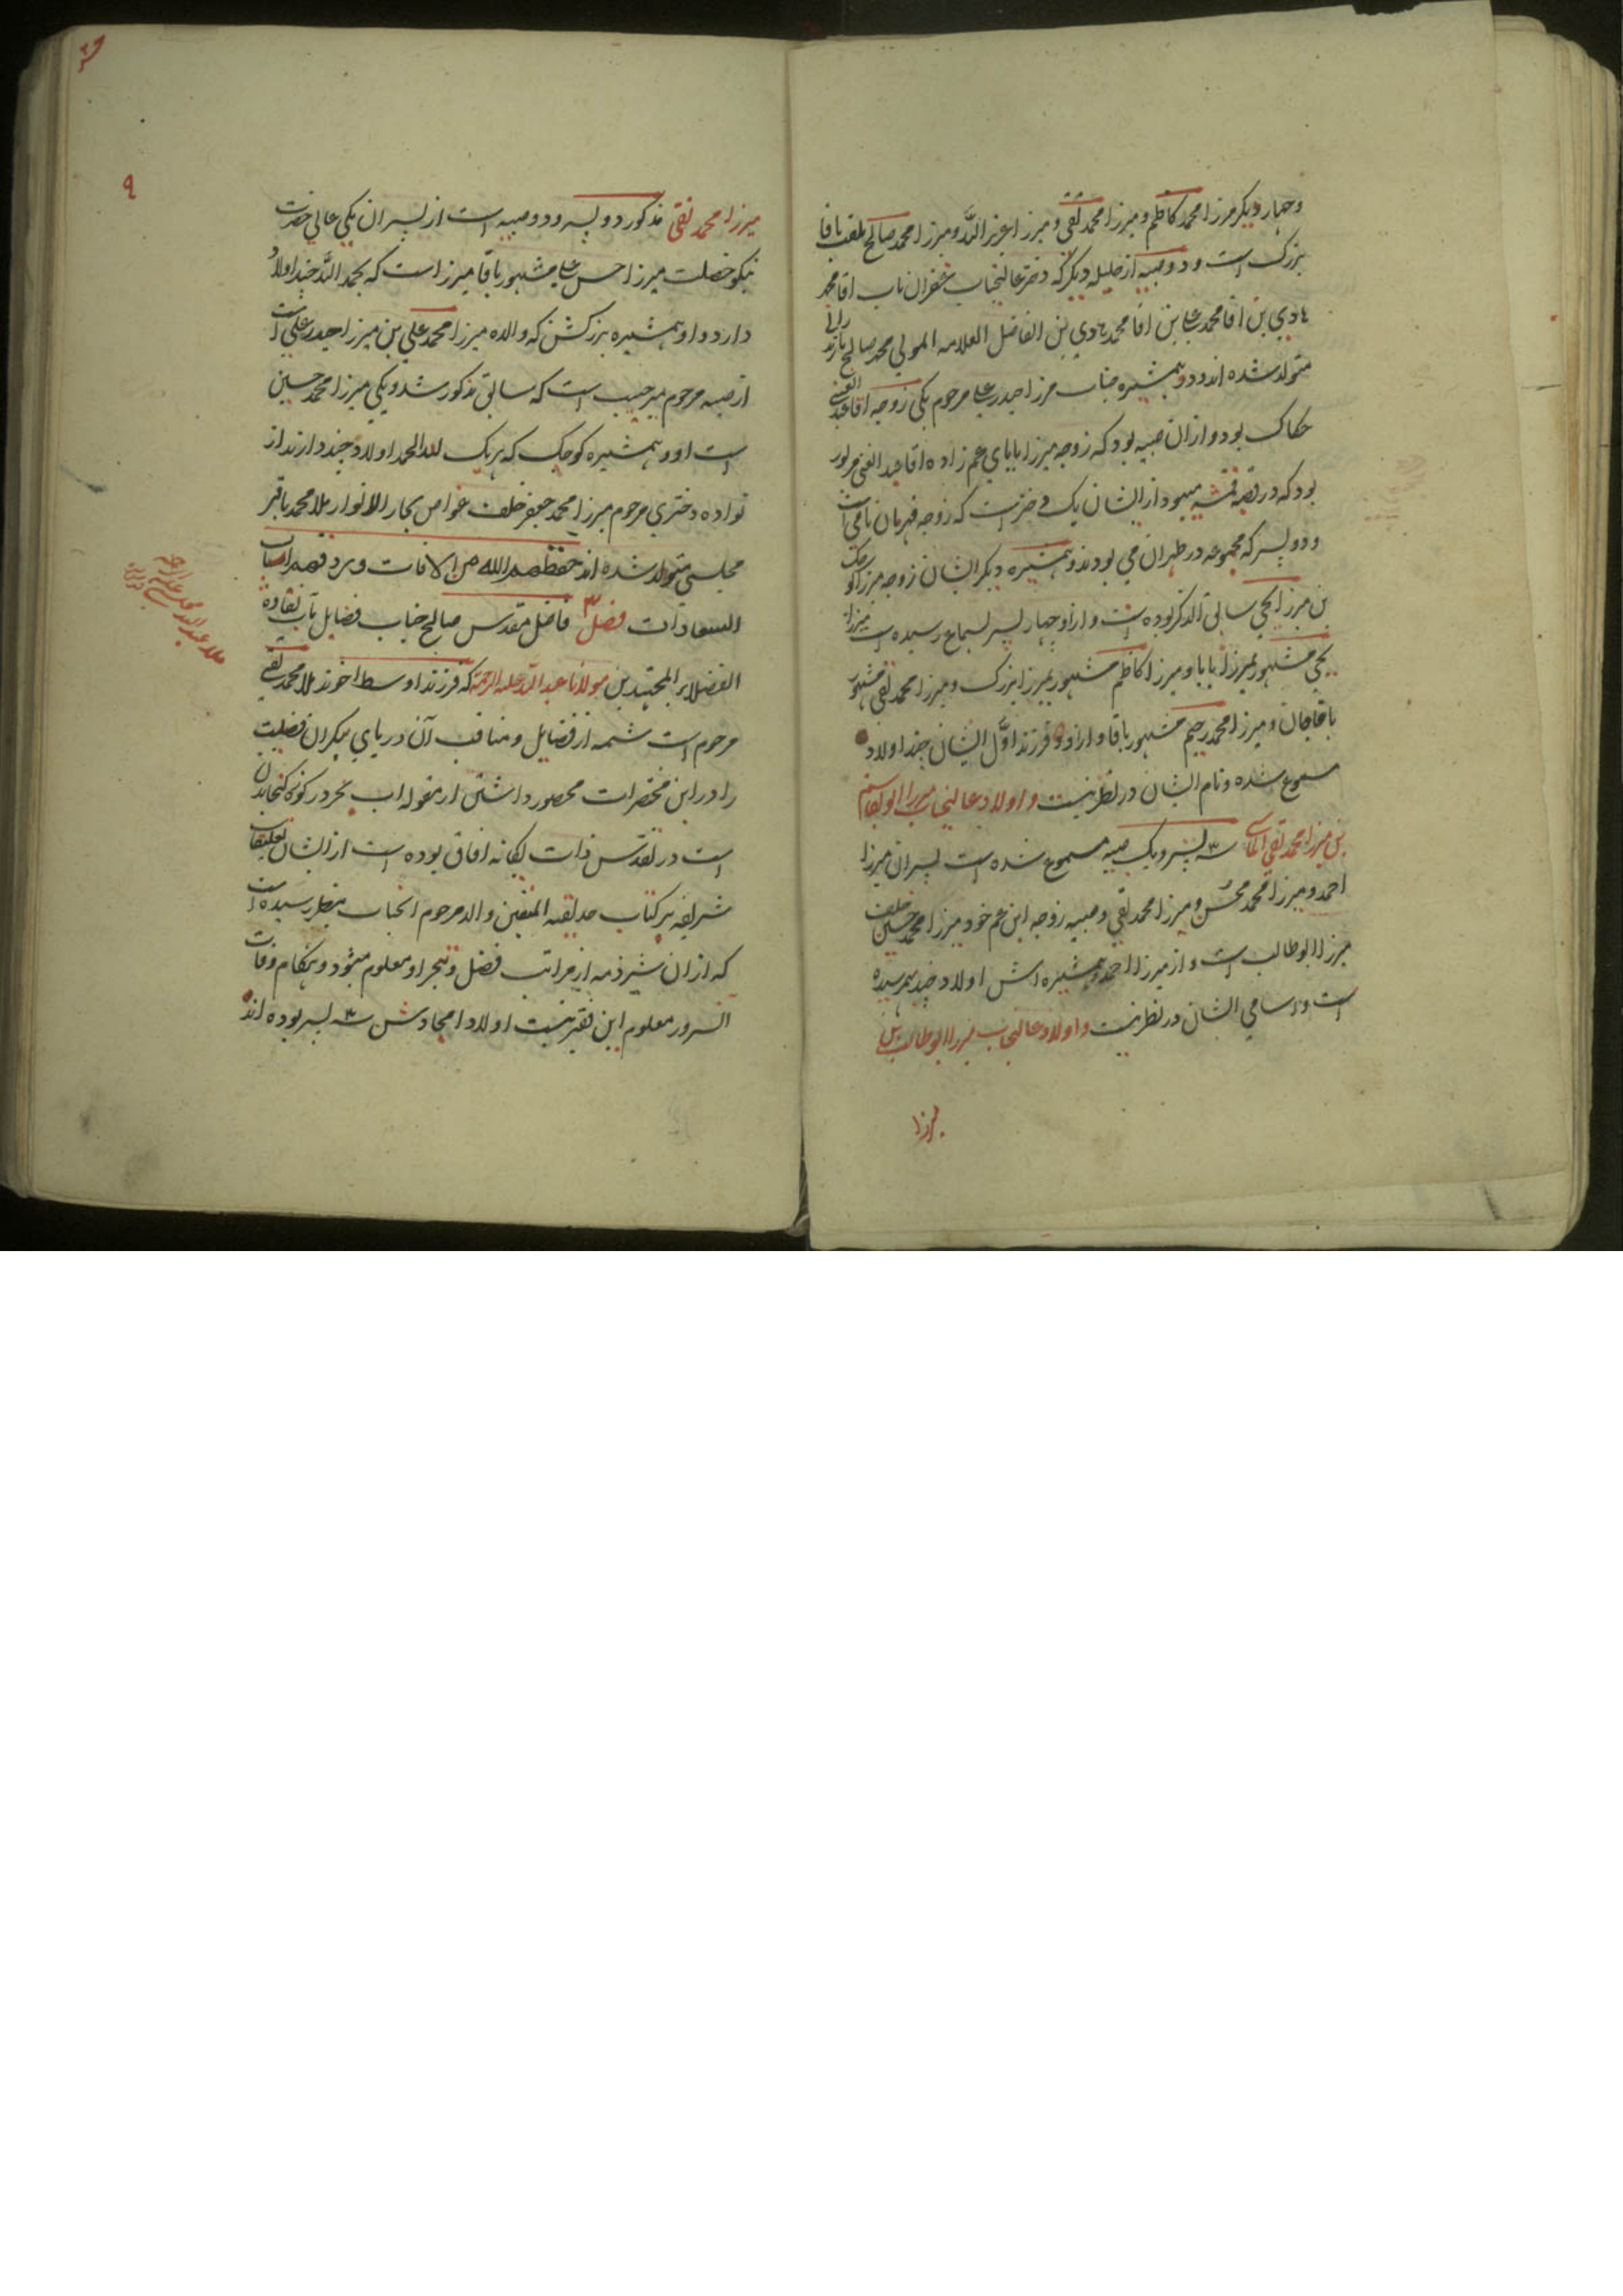 وچهار دیگر مرزا محمد کاظم و میرزا محمد تقی و میرزا عزیز الله و میرزا محمد صالح ملقب باقا
بزرک است و دو صبیه از حلیله دیگر که دختر عالیجناب غفران ماب اقا محمد
هادی بن اقا محمد علی بن اقا محمد هادی بن الفاضل العلامه المولی محمد صالح مازندرانی
متولد شده اند و دو همشیره جناب مرزا حیدر علی مرحوم یکی زوجه اقا عبد الغنی
حکاک بود و از ان صبیه بود که زوجه میرزا بابای عم زاده اقا عبد الغنی مزبور
بود که در قصبه قمشه میبود از ایشان یک دختر است که زوجه قهرمان نامی است
و دو پسر که مجموعه در طهران می بودند و همشیره دیگر ایشان زوجه مرزا کوچک
بن مرزا یحیی سابق الذکر بوده است و از او چهار پسر بسماع رسیده است میرزا
یحیی مشهور بمیرزا بابا و میرزا کاظم مشهور بمیرزا بزرک و میرزا محمد تقی مشهور
باقاجان و میرزا محمد رحیم مشهور باقا و از دو فرزند اوّل ایشان چند اولاد
مسموع شده و نام ایشان در نظر نیست و اولاد عالیجناب میرزا ابو القاسم
بن میرزا محمد تقی الماسی سه پسر و یک صبیه مسموع شده است پسران میرزا
احمد و میرزا محمد محسن و میرزا محمد تقی و صبیه زوجه ابن عم خود میرزا محمد حسین خلف
میرزا ابو طالب است و از میرزا احمد و همشیره اش اولاد چند بهمرسیده
است و اسامی ایشان در نظر نیست و اولاد عالیجناب میرزا ابو طالب بن
میرزا
۹
میرزا محمد تقی مذکور دو پسر و دو صبیه است از پسران یکی عالی حضرت
نیکو خصلت میرزا حسن علی مشهور باقا میرزا است که بحمد الله چند اولاد
دارد و او همشیره بزرکش که والده میرزا محمد علی بن میرزا حیدر علی است
از صبیه مرحوم میر حبیب است که سابق مذکور شد و یکی میرزا محمد حسین
است او و همشیره کوچک که هر یک لله الحمد اولاد چند دارند از
نواده دختری مرحوم میرزا محمد جعفر خلف غواص بحار الانوار ملا محمد باقر
مجلسی متولد شده اند حفظهم الله من الافات و یرزقهم اسباب
السعادات فصل ۳ فاضل مقدس صالح جناب فضایل مآب نقاوة
الفضلاء المجتهدین مولانا عبد الله علیه الرحمة که فرزند اوسط اخوند ملا محمد تقی
مرحوم است شمه از فضایل و مناقب آن دریای بیکران فضیلت
را در این مختصرات محصور داشتن از مقوله اب بحر در کوزه کنجاندن
است در تقدس ذات یکانه افاق بوده است از ایشان تعلیقات
شریفه بر کتاب حدیقه المتقین والد مرحوم انجناب بنظر رسیده است
که از ان شرذمه از مراتب فضل و تبحر او معلوم میشود و هنکام وفات
آنسرور معلوم این فقیر نیست اولاد امجادش سه پسر بوده اند
ملا عبد الله مجلسی علیه الرحمه